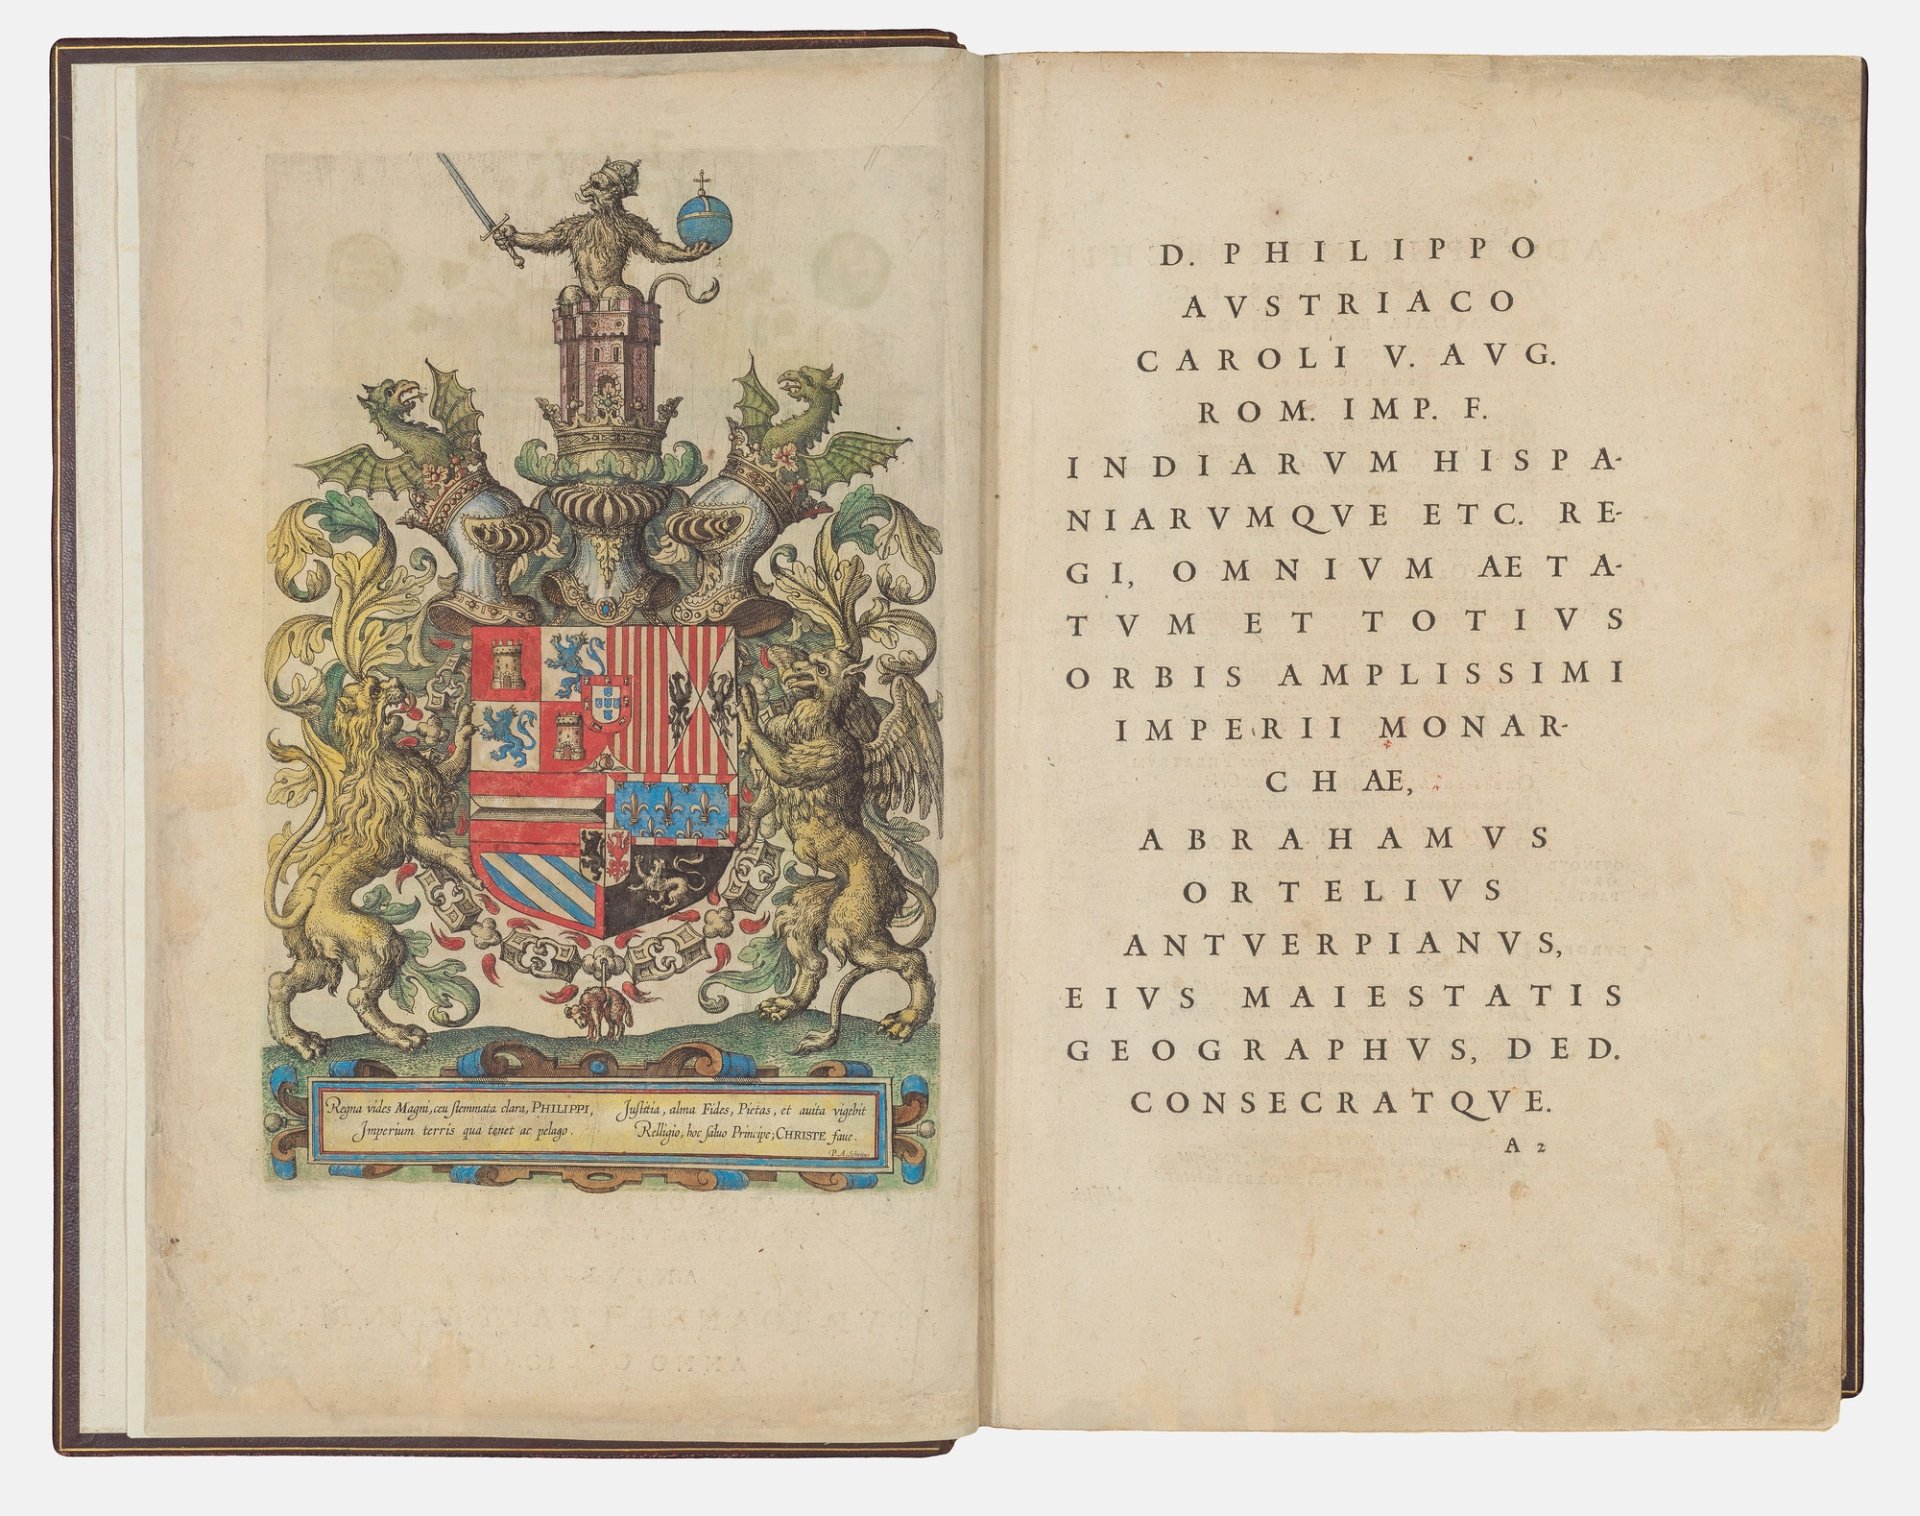 Regna vides Magni, ceu stemmata clara, PHILIPPI,
Imperium terris qua tenet ac pelago.
Iustitia, alma Fides, Pietas, et auita vigebit
Relligio, hoc saluo Principe; CHRISTE faue.
P. A.
D. PHILIPPO
AVSTRIACO
CAROLI V. AVG.
ROM. IMP. F.
INDIARVM HISPA-
NIARVMQVE ETC. RE-
GI, OMNIVM AETA-
TVM ET TOTIVS
ORBIS AMPLISSIMI
IMPERII MONAR-
CHAE,
ABRAHAMVS
ORTELIVS
ANTVERPIANVS,
EIVS MAIESTATIS
GEOGRAPHVS, DED.
CONSECRATQVE.
A 2